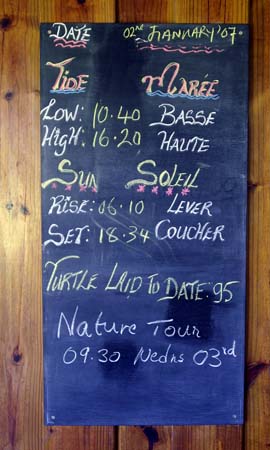 DATE 02ND JANNARY '07.
TIDE MARÉE
LOW: 10.40 BASSE
HIGH: 16.20 HAUTE
SUN SOLEIL
RISE: 06.10 LEVER
SET: 18.34 COUCHER
TURTLE LAID TO DATE. 95
Nature Tour
09.30 Wedns 03rd